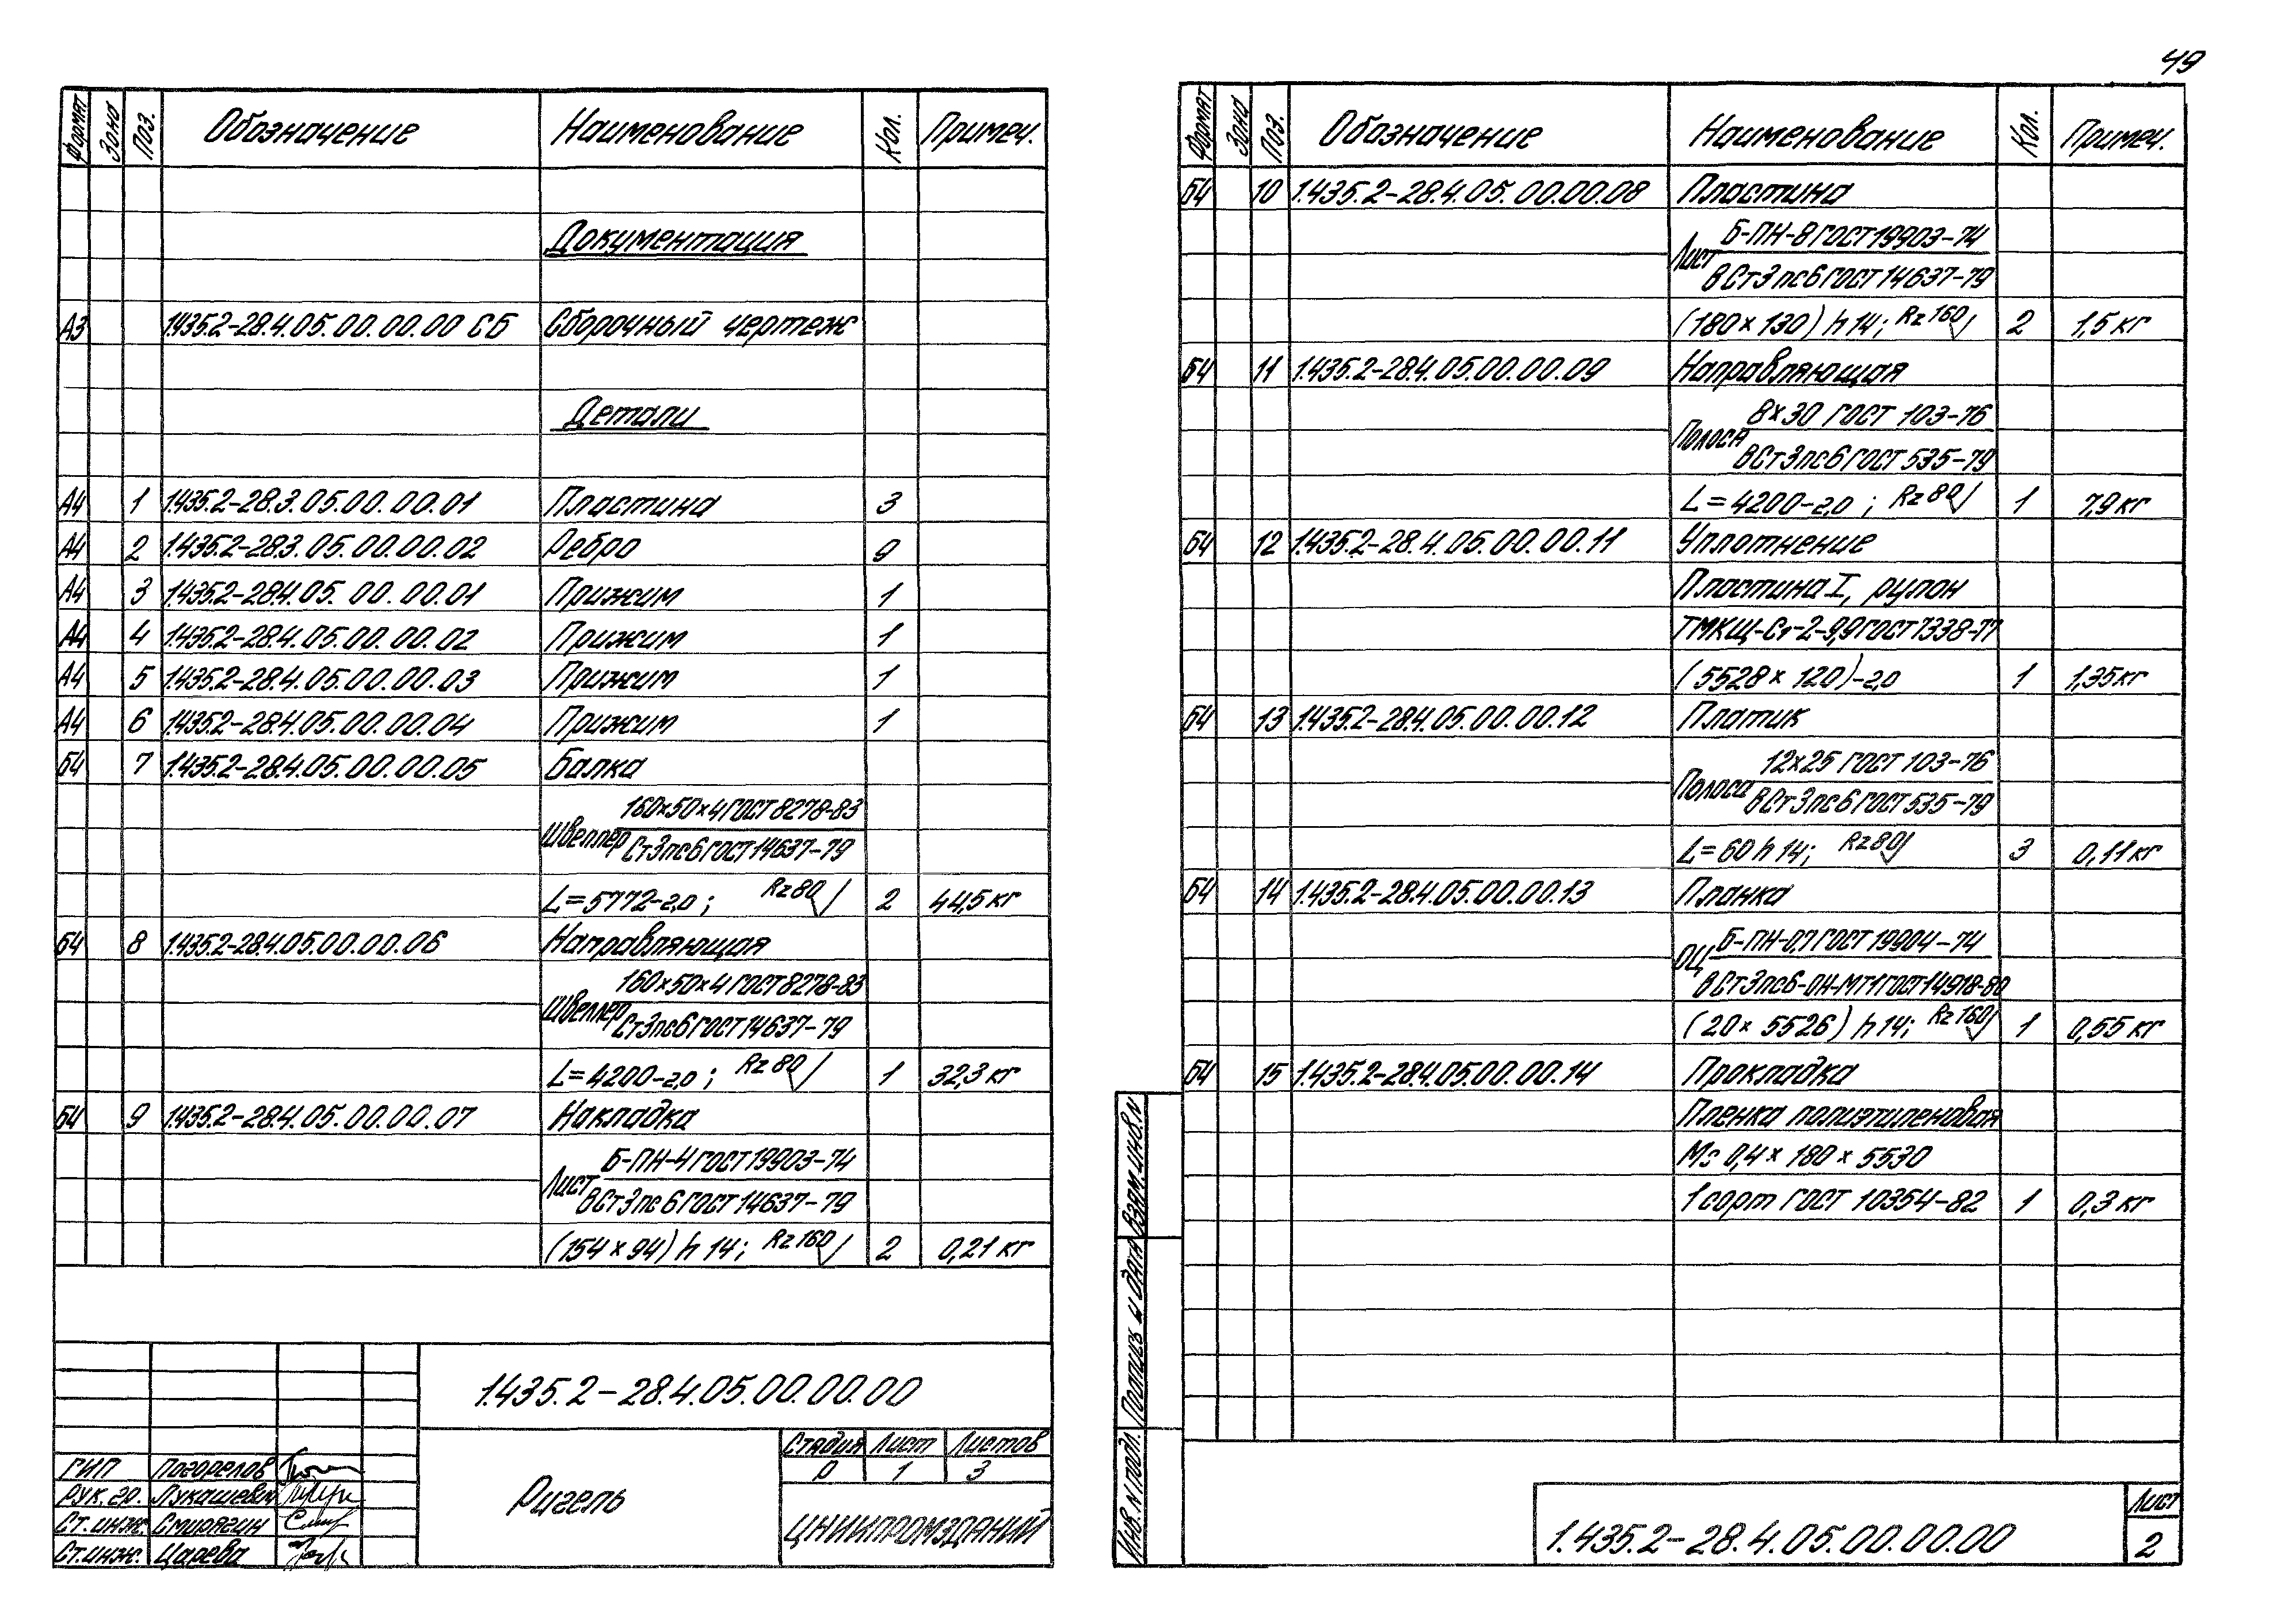 49
Формат Зона Поз. Обозначение Наименование Кол. Примеч.
Документация
А3 1.435.2-28.4.05.00.00.00 СБ Сборочный чертеж
Детали
А4 1 1.435.2-28.3.05.00.00.01 Пластина 3
А4 2 1.435.2-28.3.05.00.00.02 Ребро 9
А4 3 1.435.2-28.4.05.00.00.01 Прижим 1
А4 4 1.435.2-28.4.05.00.00.02 Прижим 1
А4 5 1.435.2-28.4.05.00.00.03 Прижим 1
А4 6 1.435.2-28.4.05.00.00.04 Прижим 1
Б4 7 1.435.2-28.4.05.00.00.05 Балка
160×50×4 ГОСТ 8278-83
Швеллер
Ст3пс6 ГОСТ 14637-79
L=5772-2,0; Rz80 2 44,5 кг
Б4 8 1.435.2-28.4.05.00.00.06 Направляющая
160×50×4 ГОСТ 8278-83
Швеллер
Ст3пс6 ГОСТ 14637-79
L=4200-2,0; Rz80 1 32,3 кг
Б4 9 1.435.2-28.4.05.00.00.07 Накладка
Б-ПН-4 ГОСТ 19903-74
Лист
ВСт3пс6 ГОСТ 14637-79
(154×94) h14; Rz160 2 0,21 кг
1.435.2-28.4.05.00.00.00
Стадия Лист Листов
Р 1 3
ГИП Погорелов
Рук. гр. Лукашевич
Ст. инж. Смирягин
Ст. инж. Царева
Ригель
ЦНИИПРОМЗДАНИЙ
Формат Зона Поз. Обозначение Наименование Кол. Примеч.
Б4 10 1.435.2-28.4.05.00.00.08 Пластина
Б-ПН-8 ГОСТ 19903-74
Лист
ВСт3пс6 ГОСТ 14637-79
(180×130) h14; Rz160 2 1,5 кг
Б4 11 1.435.2-28.4.05.00.00.09 Направляющая
8×30 ГОСТ 103-76
Полоса
ВСт3пс6 ГОСТ 535-79
L=4200-2,0; Rz80 1 7,9 кг
Б4 12 1.435.2-28.4.05.00.00.11 Уплотнение
Пластина I, рулон
ТМКЩ-С1-2-9,9 ГОСТ 7338-77
(5528×120)-2,0 1 1,35 кг
Б4 13 1.435.2-28.4.05.00.00.12 Платик
12×25 ГОСТ 103-76
Полоса
ВСт3пс6 ГОСТ 535-79
L=60 h14; Rz80 3 0,11 кг
Б4 14 1.435.2-28.4.05.00.00.13 Планка
Б-ПН-0,7 ГОСТ 19904-74
ОЦ
ВСт3пс6-ОН-МТ1 ГОСТ 14918-80
(20×5526) h14; Rz160 1 0,55 кг
Б4 15 1.435.2-28.4.05.00.00.14 Прокладка
Пленка полиэтиленовая
Мс 0,4×180×5530
1 сорт ГОСТ 10354-82 1 0,3 кг
Взам. инв. N
Подпись и дата
Инв. N подл.
1.435.2-28.4.05.00.00.00
Лист
2